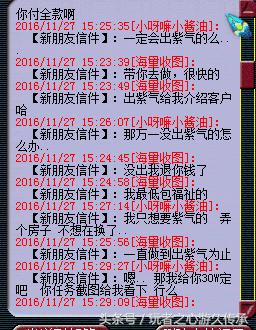 你付全款啊
2016/11/27 15:25:35[小呀嘛小酱油]:
【新朋友信件】: 一定会出紫气的么..
.
2016/11/27 15:23:39[海里收图]:
【新朋友信件】: 带你去做，很快的
2016/11/27 15:23:49[海里收图]:
【新朋友信件】: 出紫气给我介绍客户
哈
2016/11/27 15:26:07[小呀嘛小酱油]:
【新朋友信件】: 那万一没出紫气的怎
么办..
2016/11/27 15:24:45[海里收图]:
【新朋友信件】: 没出我退你钱了
2016/11/27 15:24:58[海里收图]:
【新朋友信件】: 我最低包福祉的
2016/11/27 15:27:14[小呀嘛小酱油]:
【新朋友信件】: 我只想要紫气的 弄
个房子 不想在换了..
2016/11/27 15:25:56[海里收图]:
【新朋友信件】: 一直做到出紫气为止
2016/11/27 15:29:09[小呀嘛小酱油]:
【新朋友信件】: 嗯.. 那我给你30W定
吧 你任务截图给我看下 行么
2016/11/27 15:29:09[海
头条号／玩者之心游久传承